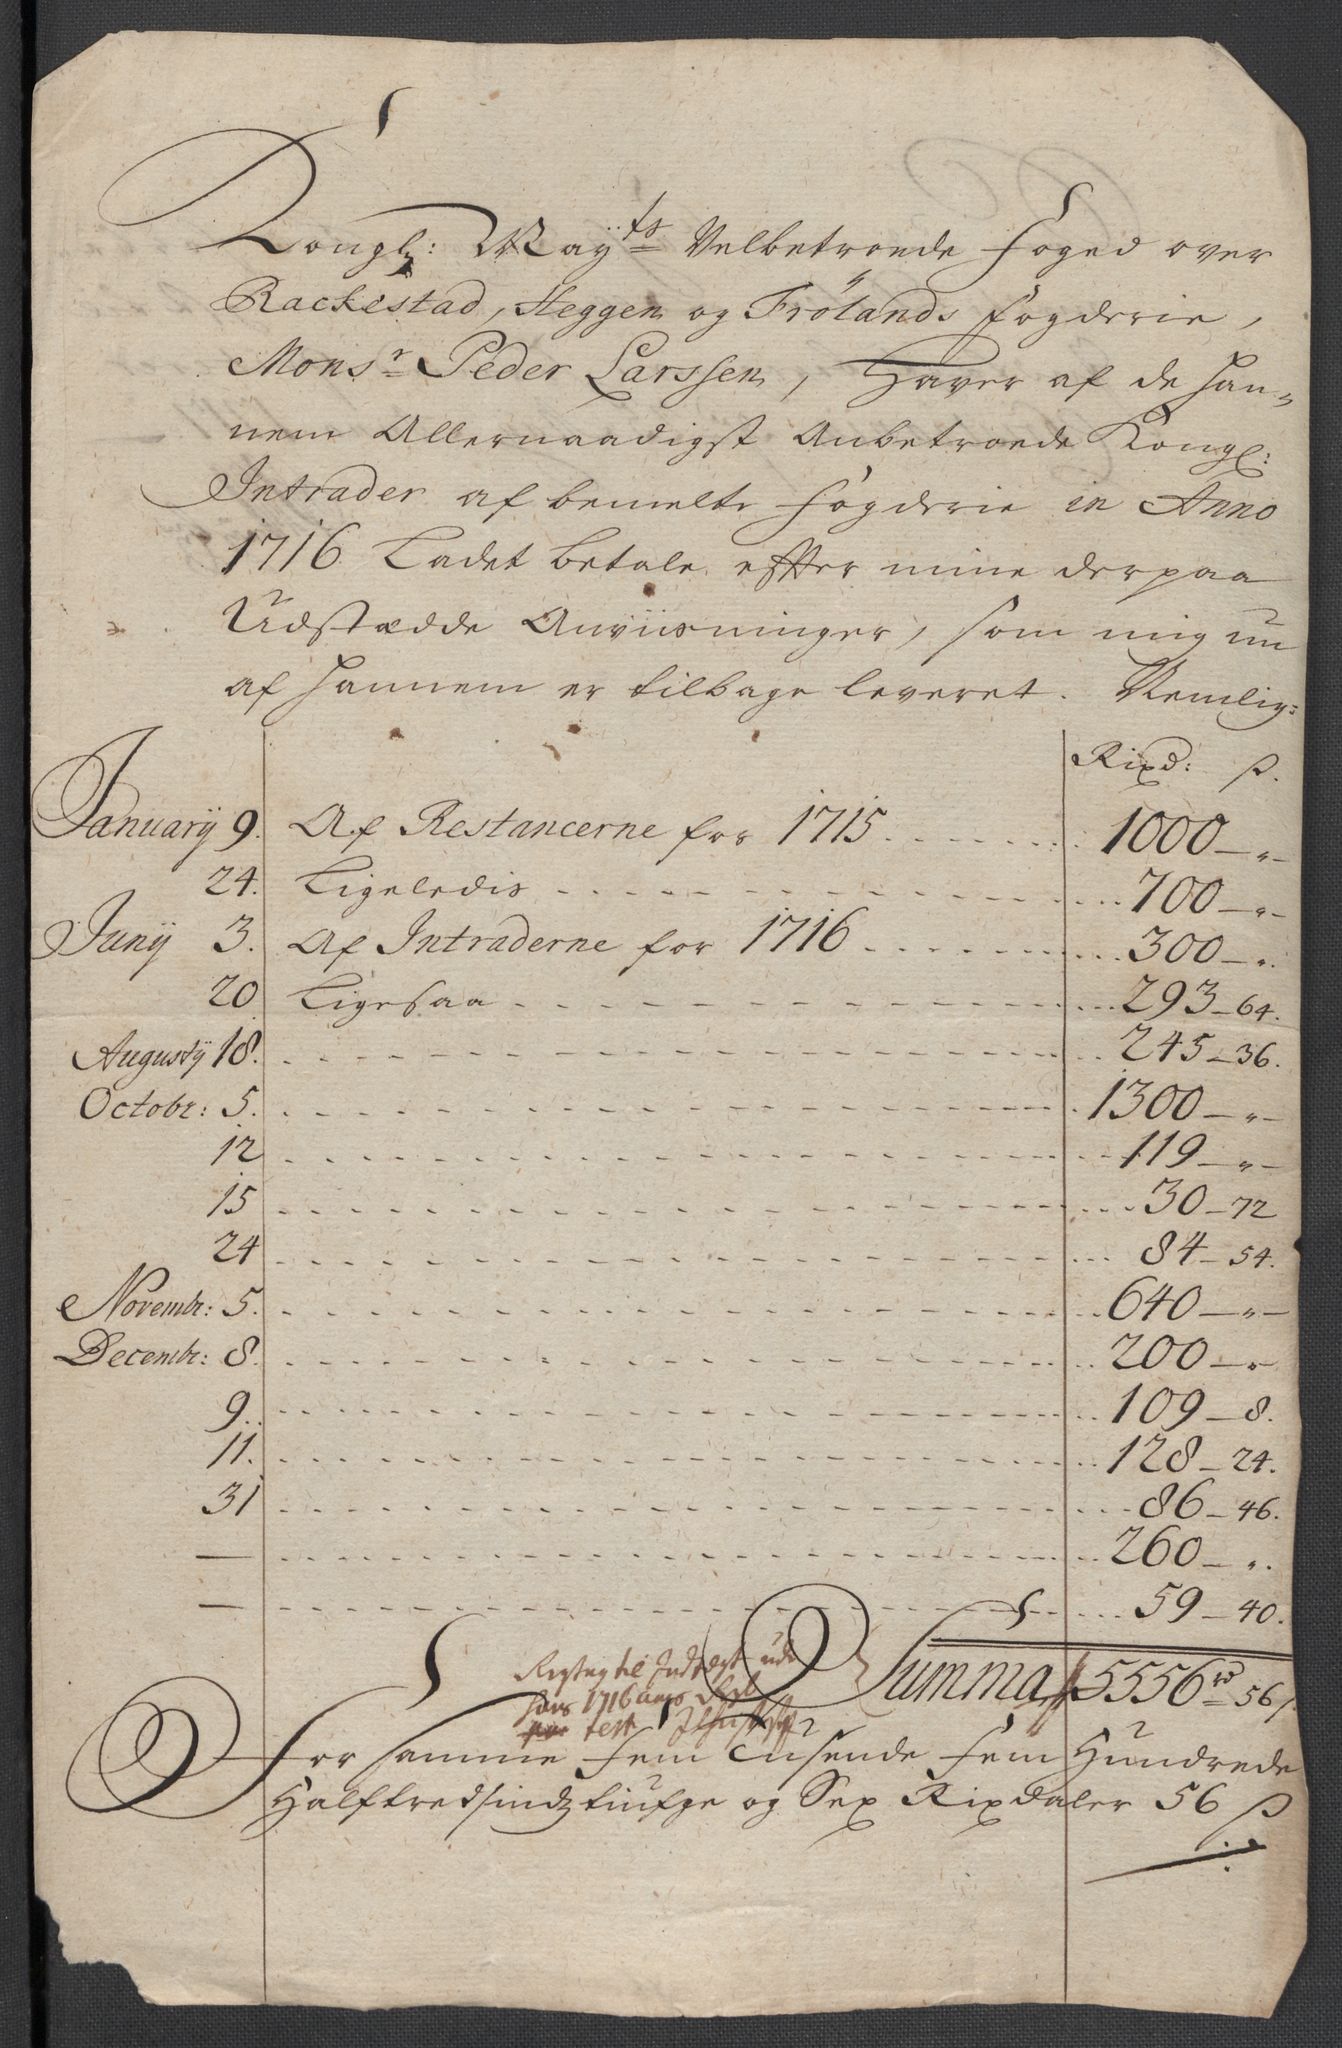 Kongl: May.ts Velbetroede Foged over
Rackestad, Heggen og Frölands Fogderie,
Mons.r Peder Larssen, Haver af de han-
nem Allernaadigst Anbetroede Kongl:
Intrader af bemelte Fogderie in Anno
1716 Ladet betale efter mine derpaa
Udstædde Anviisninger, som mig nu
af hannem er tilbage leveret. Nemlig:
Rixd: ß.
Januarÿ 9. Af Restancerne for 1715 1000 – „ –
24. Ligeledis 700 – „ –
Junÿ 3. Af Intraderne for 1716 300 – „.
20 Ligesaa 293 – 64.
Augustÿ 18. 245 – 36.
Octobr: 5. 1300 – „ –
12 119 – „ –
15 30 – 72
24 84 – 54.
Novembr: 5. 640 – „ –
Decembr: 8. 200 – „
9. 109 – 8.
11. 128 – 24.
31 86 – 46.
— 260 – „.
— 59 – 40.
Summa 5556 rd 56 ß
til Indtægt udi
1716
test
For samme Fem Tusende Fem Hundrede
Halftredsindztiufge og Sex Rixdaler 56 ß